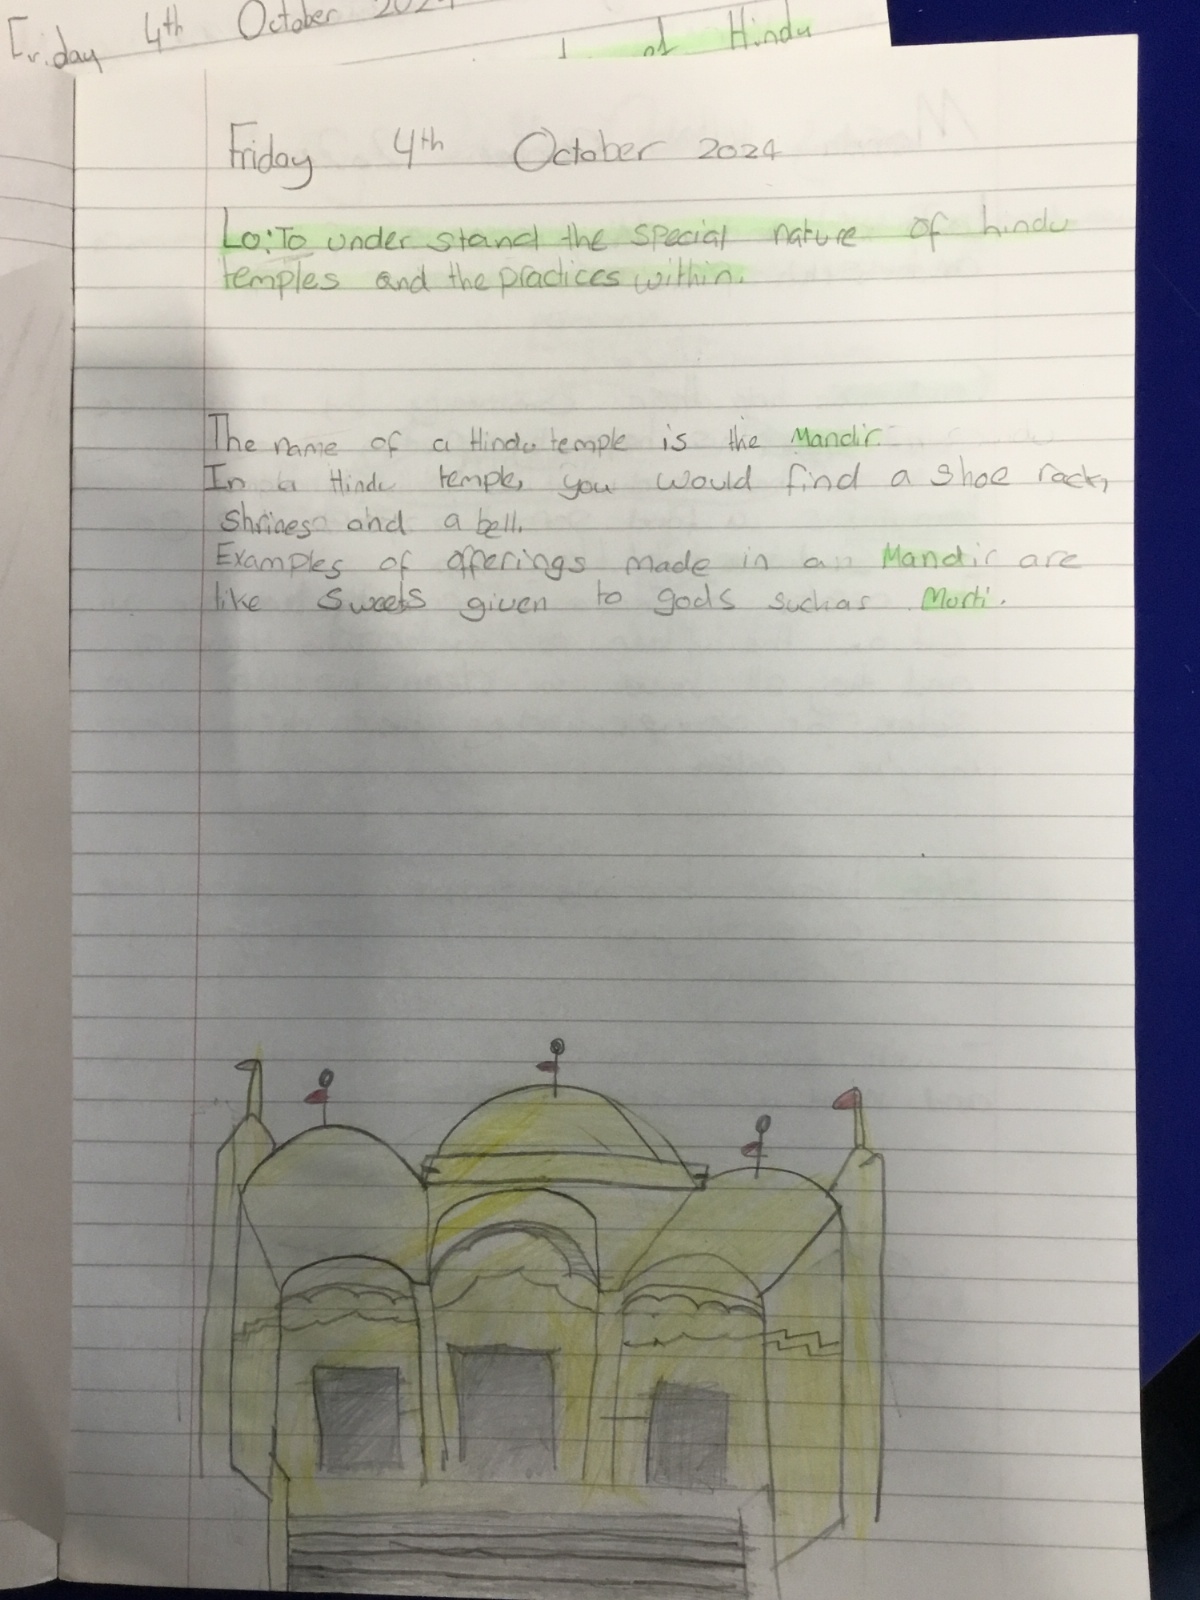 Friday 4th October 2024
of Hindu
Friday 4th October 2024
Lo: To under stand the special nature of hindu
temples and the practices within.
The name of a Hindu temple is the Mandir.
In a Hindu temple, you would find a shoe rack,
Shrines and a bell.
Examples of offerings made in a Mandir are
like Sweets given to gods such as Murti.